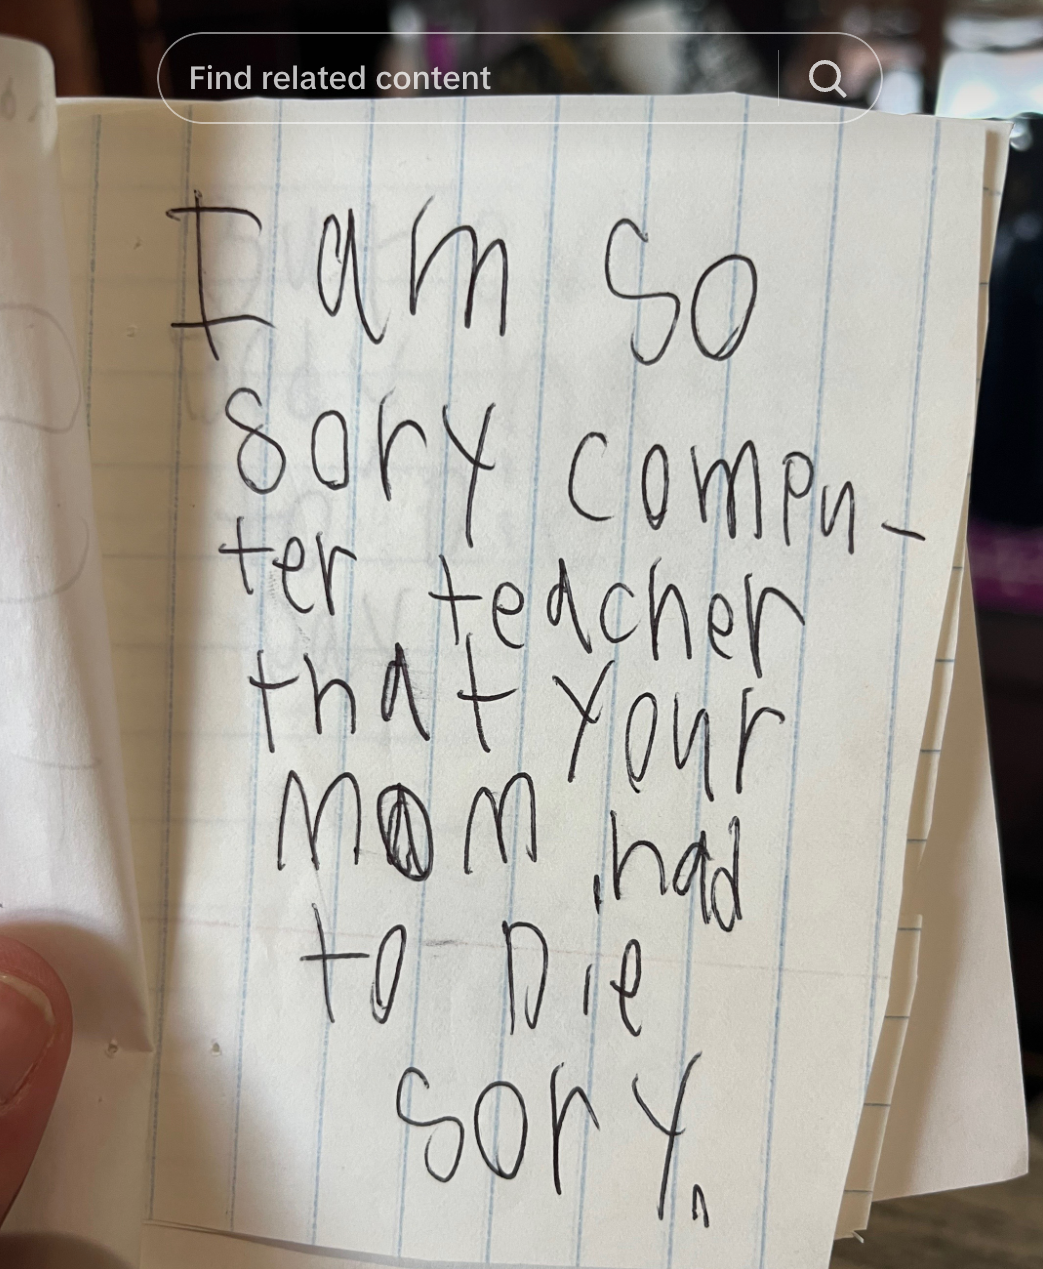 Find related content
I am so
sory compu-
ter teacher
that your
mom had
to Die
sory.